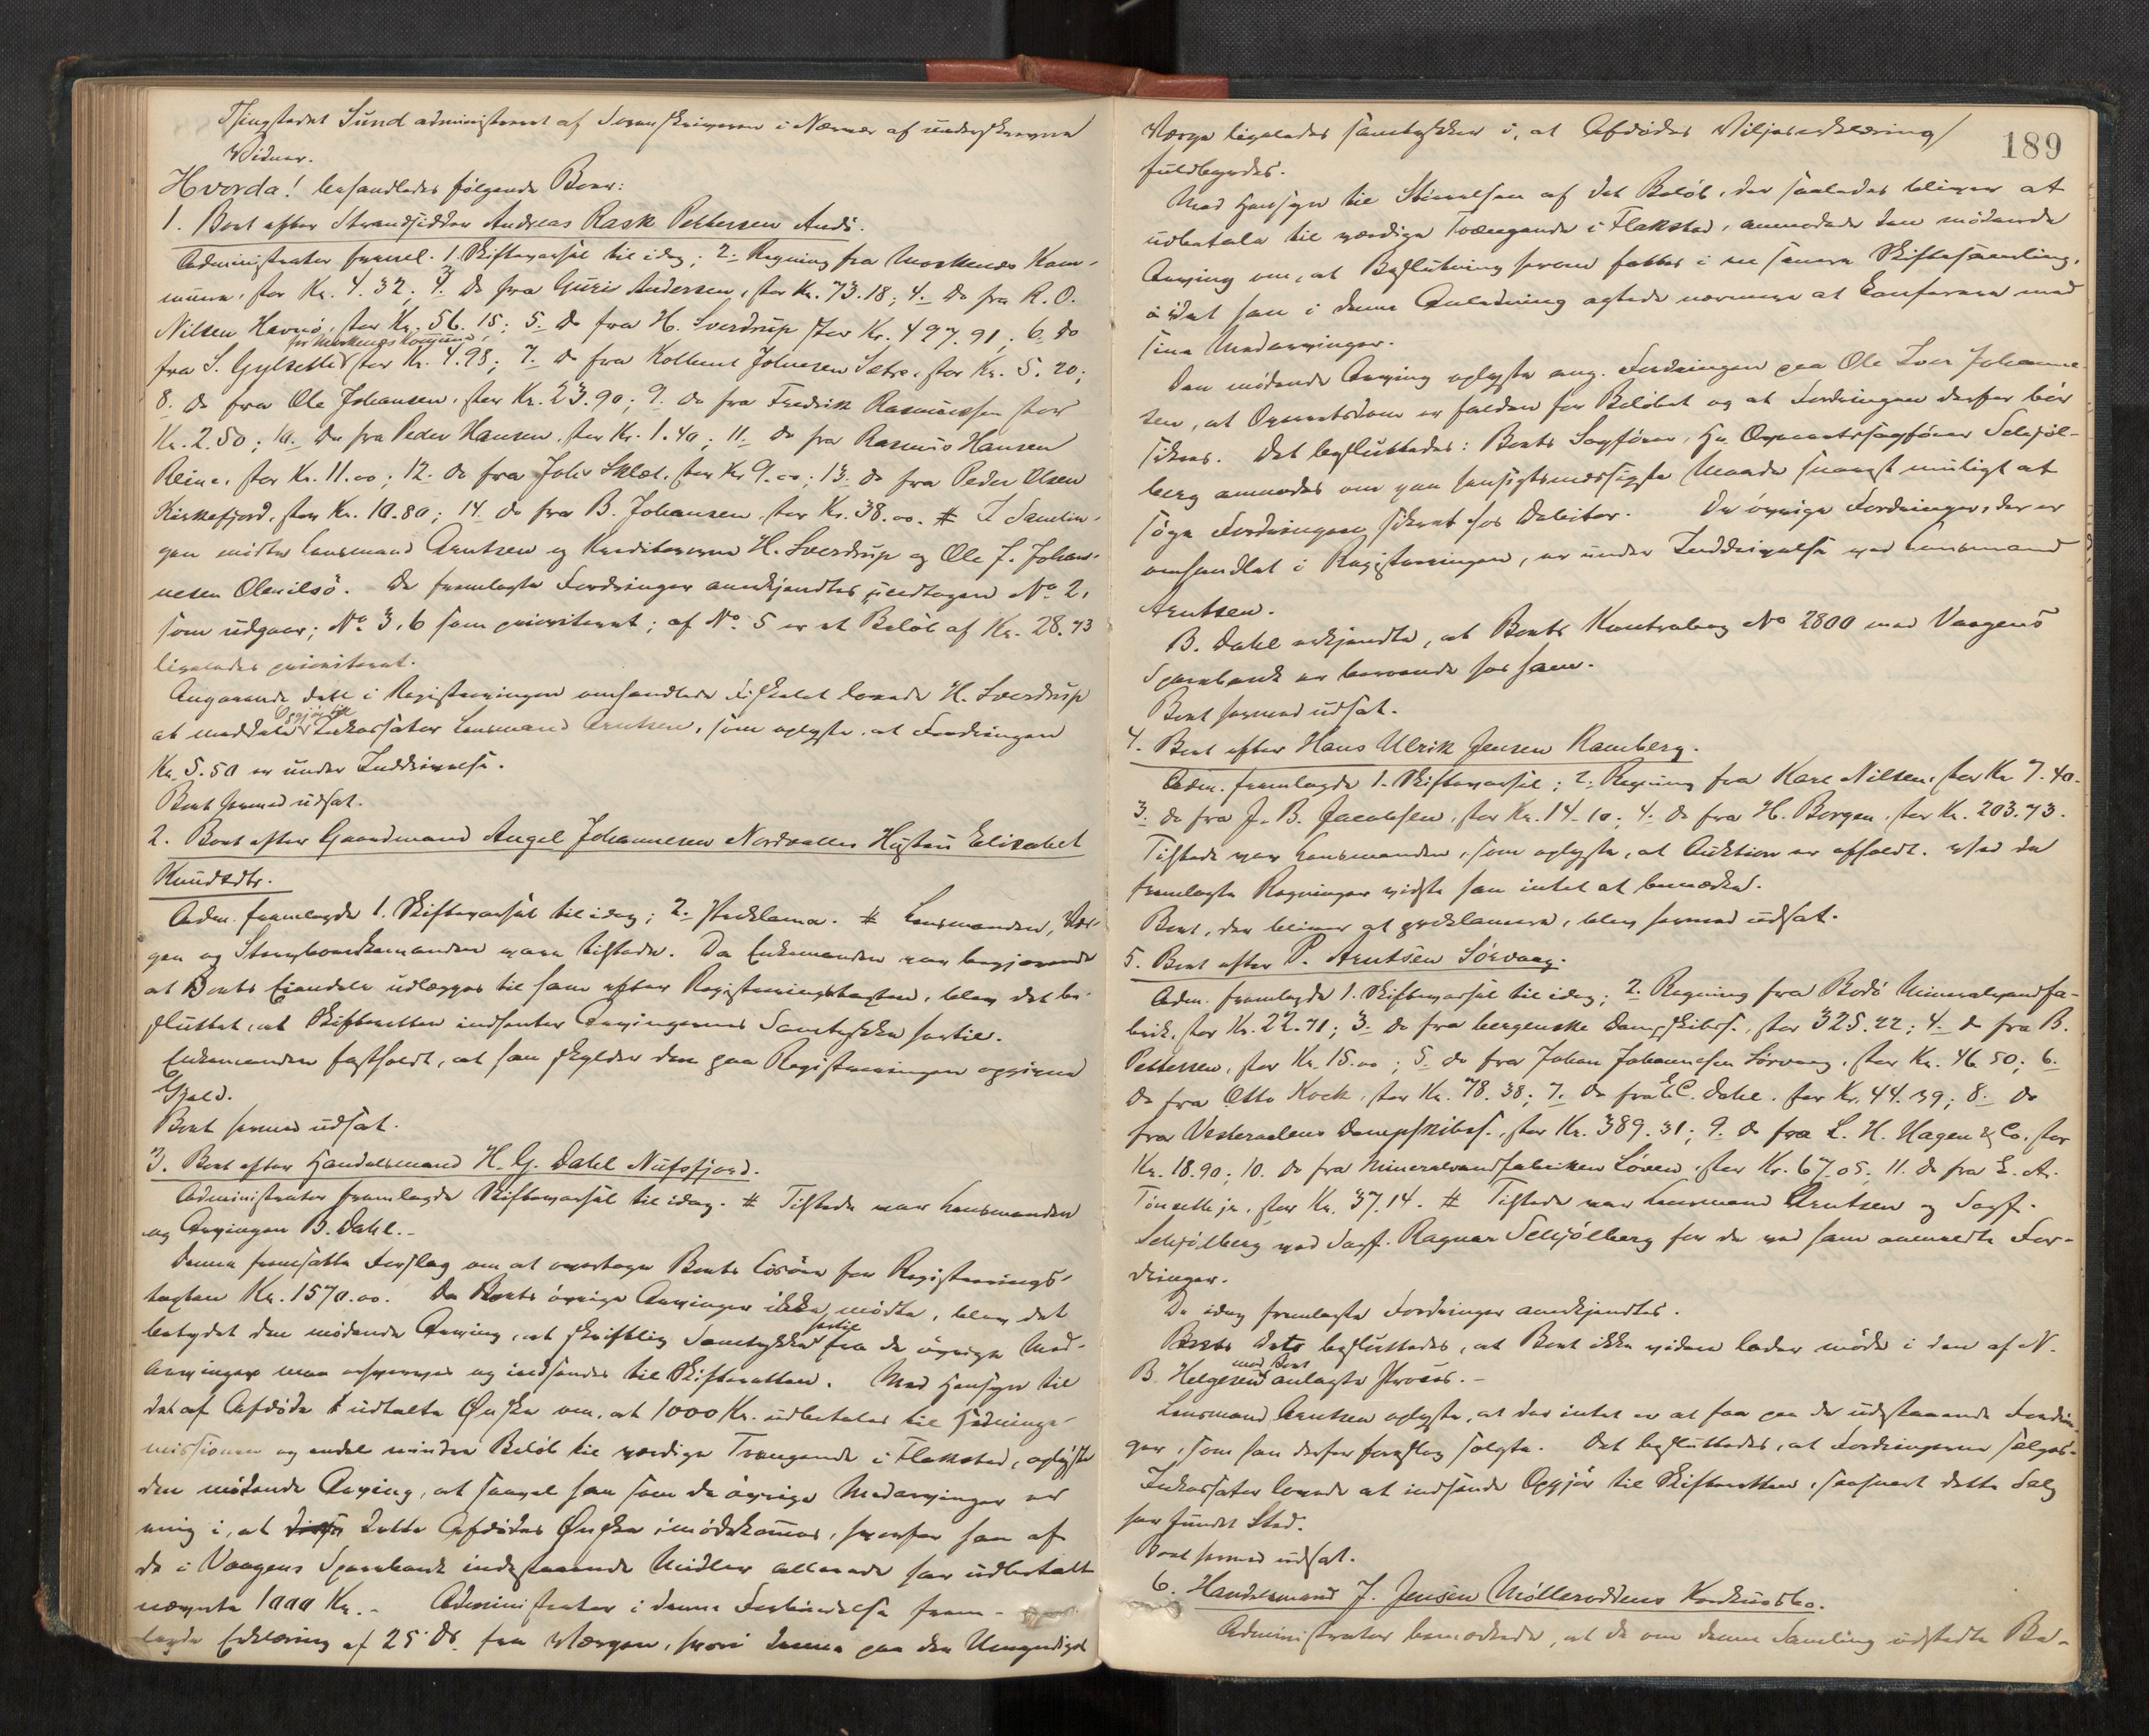 Thingstedet Sund administreret af Sorenskriveren i Nærvær af underskrevne
Vidner.
Hvorda! behandledes følgende Boer:
1. Boet efter Strandsidder Andreas Rask Pettersen Aadö.
Administrator freml. 1. Skiftevarsel til idag; 2. Regning fra Moskenes Kom-
mune, stor Kr. 4.32; 3. Do fra Guri Andersen, stor Kr. 73.18; 4. Do fra R. O.
Nilsen Havnö, stor Kr. 56.15; 5. Do fra H. Sverdrup stor Kr. 497.91; 6. do
for Moskenes Kommune,
fra S. Gylseth stor Kr. 4.95; 7. do fra Kolbent Johnesen Sætre, stor Kr. 5.20;
8. do fra Ole Johansen, stor Kr. 23.90; 9. do fra Fredrik Rasmussen stor
Kr. 2.50; 10. do fra Peder Hansen, stor Kr. 1.40; 11. do fra Rasmus Hansen
Reine, stor Kr. 11.00; 12. do fra Johs Sklet, stor Kr 9.00; 13. do fra Peder Olsen
Kirkefjord, stor Kr. 10.80; 14. do fra B. Johansen stor Kr. 38.00. # I Samlin-
gen mødte Lensmand Arntsen og Kreditorerne H. Sverdrup og Ole J. Johan-
nesen Olenilsö. De fremlagte Fordringer anerkjendtes undtagen No. 2,
som udgaar; No. 3, 6 som prioriteret; af No. 5 er et Beløb af Kr. 28.73
ligeledes prioriteret.
Angaaende det i Registreringen omhandlede lovede H. Sverdrup
Opgjør
at meddele Inkassator Lensmand Arntsen, som oplyste, at Fordringen
Kr. 5.50 er under Inddrivelse.
Boet hermed udsat.
2. Boet efter Gaardmand Angel Johannesen Nordvalles Hustru Elisabet
Knudsdtr.
Adm. fremlagde 1. Skiftevarsel til idag; 2. Proklama. # Lensmanden, Vær-
gen og Stervboenkemanden vare tilstede. Da Enkemanden var begjærende
at Boets Eiendele udlægges til ham efter Registreringstaxten, blev det be-
sluttet, at Skifteretten indhenter Arvingernes Samtykke hertil.
Enkemanden fastholdt, at han skylder den paa Registreringen opgivne
Gjeld.
Boet hermed udsat.
3. Boet efter Handelsmand H. G. Dahl Nufsfjord.
Administrator fremlagde Skiftevarsel til idag. # Tilstede var Lensmanden
og Arvingen B. Dahl.-
Denne fremsatte Forslag om at overtage Boets Løsøre for Registrerings-
taxten Kr. 1570.00. Da Boets øvrige Arvinger ikke mødte, blev det
hertil
betydet den mødende Arving, at skriftlig Samtykke fra de øvrige Med-
arvinger maa erhverves og indsendes til Skifteretten. Med Hensyn til
det af Afdøde udtalte Ønske om, at 1000 Kr. udbetales til Hedninge-
missionen og endel mindre Beløb til værdige Trængende i Flakstad, oplyste
den mødende Arving, at saavel han som de øvrige Medarvinger er
enig i, at dette Afdødes Ønske imødekommes, hvorfor han af
de i Vaagens Sparebank indestaaende Midler allerede har udbetalt
nævnte 1000 Kr.- Administrator i denne Forbindelse frem-
lagde Erklæring af 25 ds. fra Værgen, hvori denne paa den Umyndiges
189
Værge ligeledes samtykker i, at Afdødes Viljeserklæring
fuldbyrdes.
Med Hensyn til Størrelsen af det Beløb, der saaledes bliver at
udbetale til værdige Trængende i Flakstad, anmodede den mødende
Arving om, at Beslutning herom fattes i en senere Skiftesamling,
idet han i denne Anledning agtede nærmere at konferere med
sine Medarvinger.
Den mødende Arving oplyste ang. Fordringen paa Ole Iver Johanne-
sen, at Overretsdom er falden for Beløbet og at Fordringen derfor bør
sikres. Det besluttedes: Boets Sagfører, Hr. Overretssagfører Schjøl-
berg anmodes om paa hensigtsmæssigste Maade snarest muligt at
søge Fordringen sikret hos Debitor. De øvrige Fordringer, der er
omhandlet i Registreringen, er under Inddrivelse ved Lensmand
Arntsen.
B. Dahl erkjendte, at Boets Kontrabog No 2800 med Vaagens
Sparebank er beroende hos ham.
Boet hermed udsat.
4. Boet efter Hans Ulrik Jensen Ramberg.
Adm. fremlagde 1. Skiftevarsel; 2. Regning fra Karl Nilsen, stor Kr 7.40.
3. do fra J. B. Jacobsen, stor Kr. 14.10; 4. do fra H. Borgen, stor Kr. 203.73.
Tilstede var Lensmanden, som oplyste, at Auktion er afholdt. Med de
fremlagte Regninger vidste han intet at bemærke.
Boet, der bliver at proklamere, blev hermed udsat.
5. Boet efter P. Arntsen Sörvaag.
Adm. fremlagde 1. Skiftevarsel til idag; 2. Regning fra Bodö Mineralvandfa-
brik, stor Kr. 22.71; 3. do fra bergenske Dampskibss., stor 325.22; 4. do fra B.
Pettersen, stor Kr. 15.00; 5. do fra Johan Johannesen Sørvaag, stor Kr. 46.50; 6.
do fra Otto Koch, stor Kr. 78.38; 7. do fra C. Dahl, stor Kr. 44.39; 8. do
fra Vesteraalens Dampskibss., stor Kr. 389.31; 9. do fra L. H. Hagen & Co. stor
Kr. 18.90; 10. do fra Mineralvandfabriken Löven, stor Kr. 67.05; 11. do fra E. A.
Tönseth jr., stor Kr. 37.14. # Tilstede var Lensmand Arntsen og Sagf.
Schjölberg ved Sagf. Ragnar Schjölberg for de ved ham anmeldte For-
dringer.
De idag fremlagte Fordringer anerkjendtes.
besluttedes, at Boet ikke videre lader møde i den af N.
mod Boet
B. Helgesen anlagte Proces.-
Lensmand Arntsen oplyste, at der intet er at faa paa de udestaaende Fordrin-
ger, som han derfor foreslog solgte. Det besluttedes, at Fordringerne sælges.
Inkassator lovede at indsende Opgjør til Skifteretten, saasnart dette Salg
har fundet Sted.
Boet hermed udsat.
6. Handelsmand J. Jensen Mølleroddens Konkursbo.
Administrator bemærkede, at de om denne Samling udstedte Be-